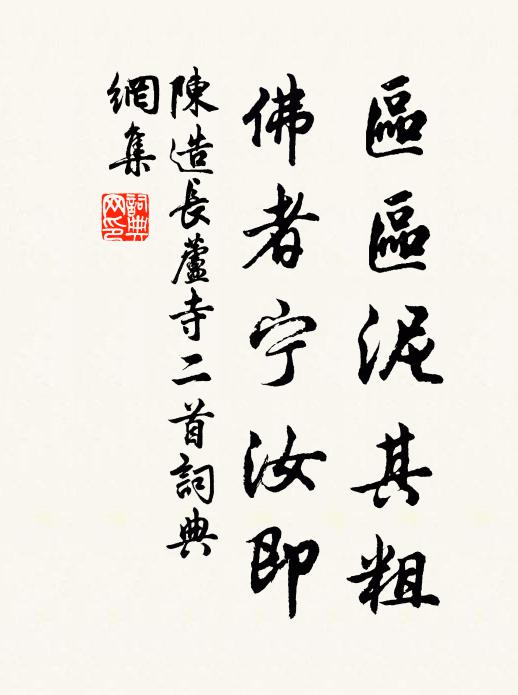 區區泥其粗
佛者宁汝即
陳造長蘆寺二首詞典
網集
詞典
网印